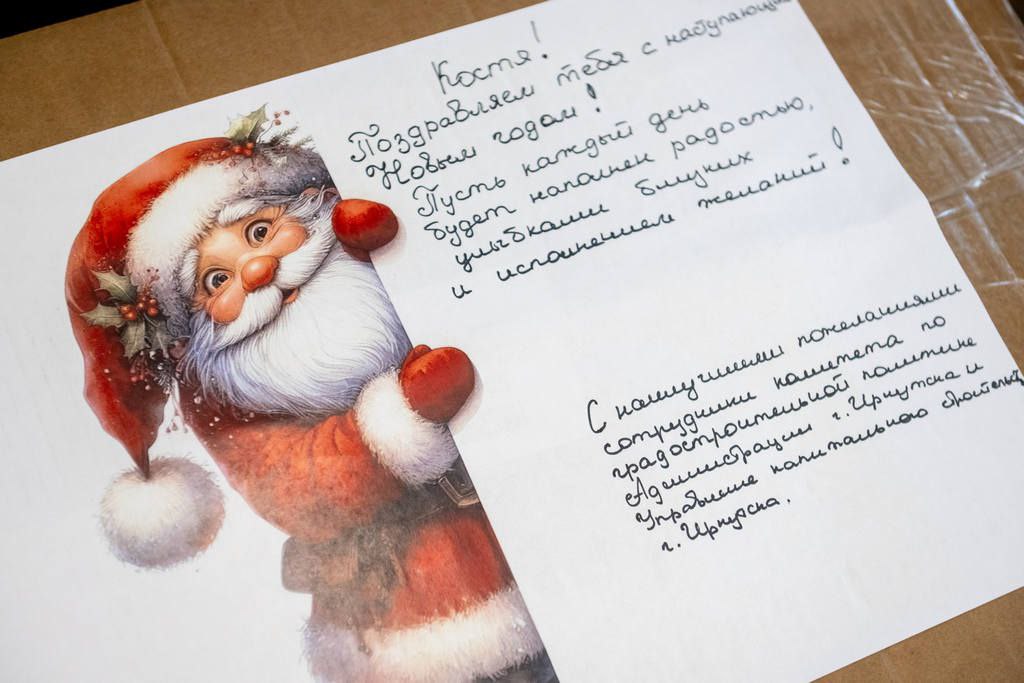 Костя!
Поздравляем тебя с наступающим
Новым годом!
Пусть каждый день
будет наполнен радостью,
улыбками близких
и исполнением желаний!
С наилучшими пожеланиями
сотрудники комитета по
градостроительной политике
Администрации г. Иркутска и
Управление капитального строительства
г. Иркутска.